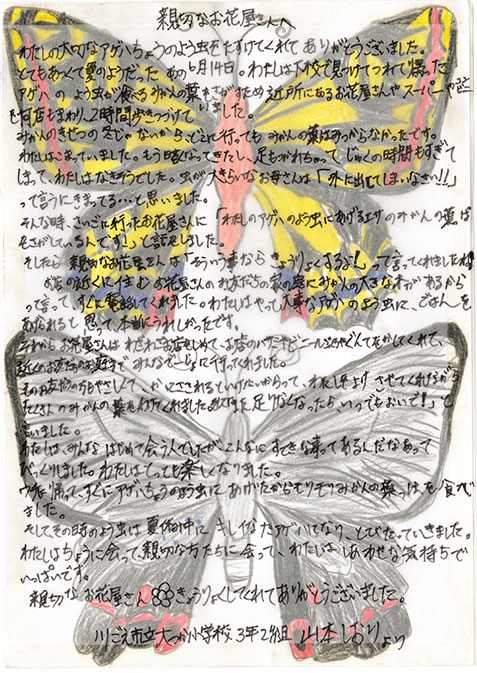 親切なお花屋さんへ
わたしの大切なアゲハちょうのよう虫をたすけてくれてありがとうございました。
とてもあつくて夏のようだったあの6月14日。わたしは下校で見つけてつれて帰った
アゲハのよう虫が食べるみかんの葉をさがすため近所にあるお花屋さんやスーパーや
を何店もまわり、2時間歩きつづけていました。
みかんのきせつの冬じゃないから、どこに行ってもみかんの葉はみつからなかったです。
わたしはこまっていました。もう暗なってきたし、足もつかれちゃってじゅくの時間もすぎて
しまって、わたしはなきそうでした。虫が大きらいなお母さんは「外に出してしまいなさい!!」
って言うにきまってる…と思いました。
そんな時、さいごに行ったお花屋さんに「わたしのアゲハのよう虫にあげるエサのみかんの葉ば
をさがしているんです!」と話をしました。
そしたら親切なお花屋さんは「そういう事ならきょうりょくするよ!」って言ってくれました
お店の近くに住むお花屋さんのお友だちの家の庭にみかんの大きな木があるから
って言って、すぐに電話してくれました。わたしはやっと大事なアゲハのよう虫に、ごはんを
あげられると思って、本当にうれしかったです。
それからお花屋さんはわざわざお店をしめて、お店のハサミやビニールぶくろやぐんてをかしてくれて、
近くのお友だちのお庭まで みんなでいっしょに行ってくれました。
そのお友だちの方もやさしくて、かにさされるといけないからって、わたしを
たくさんのみかんの葉をくれました。また足りなくなったら、いつでもおいで!」と
言いました。
わたしは、みんなはじめて会う人でしたが、こんなにすてきな事ってあるんだなあって
びっくりしました。わたしはとっても楽しくなりました。
ウチに帰って、すぐにアゲハちょうのよう虫にあげたらもりもりみかんの葉っぱを食べ
ました。
そして、その時のよう虫は夏休中にキレイなアゲハになり、とびたっていきました。
わたしはちょうに会って、親切な方たちに会って、わたしはしあわせな気持ちで
いっぱいです。
親切なお花屋さんきょうりょくしてくれてありがとうございました。
川ごえ市立大つか小学校 3年2組 山本しおりより